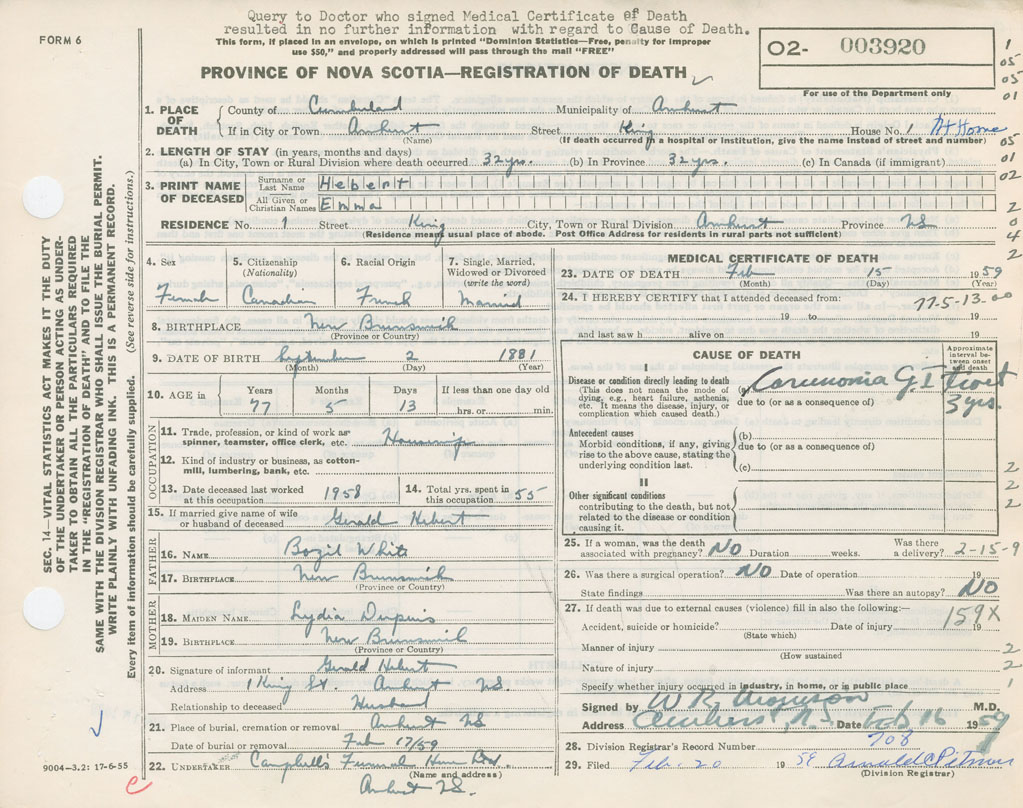 Query to Doctor who signed Medical Certificate of Death
resulted in no further information with regard to Cause of Death.
FORM 6
This form, if placed in an envelope, on which is printed "Dominion Statistics—Free, penalty for improper
use $50," and properly addressed will pass through the mail "FREE"
PROVINCE OF NOVA SCOTIA—REGISTRATION OF DEATH
02- 003920
For use of the Department only
1
05
05
01
05
01
02
2
0
4
2
1. PLACE OF DEATH
County of Cumberland Municipality of Amherst
If in City or Town Amherst Street King House No. 1 At Home
(Name) (If death occurred in a hospital or institution, give the name instead of street and number)
2. LENGTH OF STAY (in years, months and days)
(a) In City, Town or Rural Division where death occurred 32 yrs. (b) In Province 32 yrs. (c) In Canada (if immigrant)
3. PRINT NAME OF DECEASED
Surname or Last Name Hebert
All Given or Christian Names Emma
RESIDENCE No. 1 Street King City, Town or Rural Division Amherst Province NS
(Residence means usual place of abode. Post Office Address for residents in rural parts not sufficient)
4. Sex 5. Citizenship (Nationality) 6. Racial Origin 7. Single, Married, Widowed or Divorced (write the word)
Female Canadian French Married
8. BIRTHPLACE New Brunswick
(Province or Country)
9. DATE OF BIRTH September 2 1881
(Month) (Day) (Year)
10. AGE in Years Months Days If less than one day old
77 5 13 hrs. or min.
OCCUPATION
11. Trade, profession, or kind of work as spinner, teamster, office clerk, etc. Housewife
12. Kind of industry or business, as cotton-mill, lumbering, bank, etc.
13. Date deceased last worked at this occupation 1958 14. Total yrs. spent in this occupation 55
15. If married give name of wife or husband of deceased Gerald Hebert
FATHER
16. NAME Bazil White
17. BIRTHPLACE New Brunswick
(Province or Country)
MOTHER
18. MAIDEN NAME Lydia
19. BIRTHPLACE New Brunswick
(Province or Country)
20. Signature of informant Gerald Hebert
Address 1 King St. Amherst NS.
Relationship to deceased Husband
21. Place of burial, cremation or removal Amherst NS
Date of burial or removal Feb 17/59
22. UNDERTAKER Campbell's Funeral Home
(Name and address)
Amherst NS.
MEDICAL CERTIFICATE OF DEATH
23. DATE OF DEATH Feb 15 1959
(Month) (Day) (Year)
24. I HEREBY CERTIFY that I attended deceased from:
77-5-13-00
19 to 19
and last saw h alive on 19
CAUSE OF DEATH
Approximate interval between onset and death
I
Disease or condition directly leading to death (a) Carcinoma G.I. Tract
(This does not mean the mode of dying, e.g., heart failure, asthenia, etc. It means the disease, injury, or complication which caused death.)
due to (or as a consequence of)
3 yrs.
Antecedent causes (b)
Morbid conditions, if any, giving rise to the above cause, stating the underlying condition last.
due to (or as a consequence of)
(c)
2
II
2
Other significant conditions contributing to the death, but not related to the disease or condition causing it.
2
25. If a woman, was the death associated with pregnancy? No Duration weeks. Was there a delivery? 2-15-9
26. Was there a surgical operation? NO Date of operation 19
State findings Was there an autopsy? No
27. If death was due to external causes (violence) fill in also the following:—
159X
Accident, suicide or homicide? Date of injury 19
(State which)
Manner of injury 2
(How sustained
Nature of injury 2
Specify whether injury occurred in industry, in home, or in public place 1
Signed by W. R. M.D.
Address Amherst, N.S. Date Feb 16 1959
28. Division Registrar's Record Number 708
29. Filed Feb. 20 1959 Arnold C Pitman
(Division Registrar)
SEC. 14—VITAL STATISTICS ACT MAKES IT THE DUTY
OF THE UNDERTAKER OR PERSON ACTING AS UNDER-
TAKER TO OBTAIN ALL THE PARTICULARS REQUIRED
IN THE "REGISTRATION OF DEATH" AND TO FILE THE
SAME WITH THE DIVISION REGISTRAR WHO SHALL ISSUE THE BURIAL PERMIT.
WRITE PLAINLY WITH UNFADING INK. THIS IS A PERMANENT RECORD.
Every item of information should be carefully supplied. (See reverse side for instructions.)
9004—3.2: 17-6-55